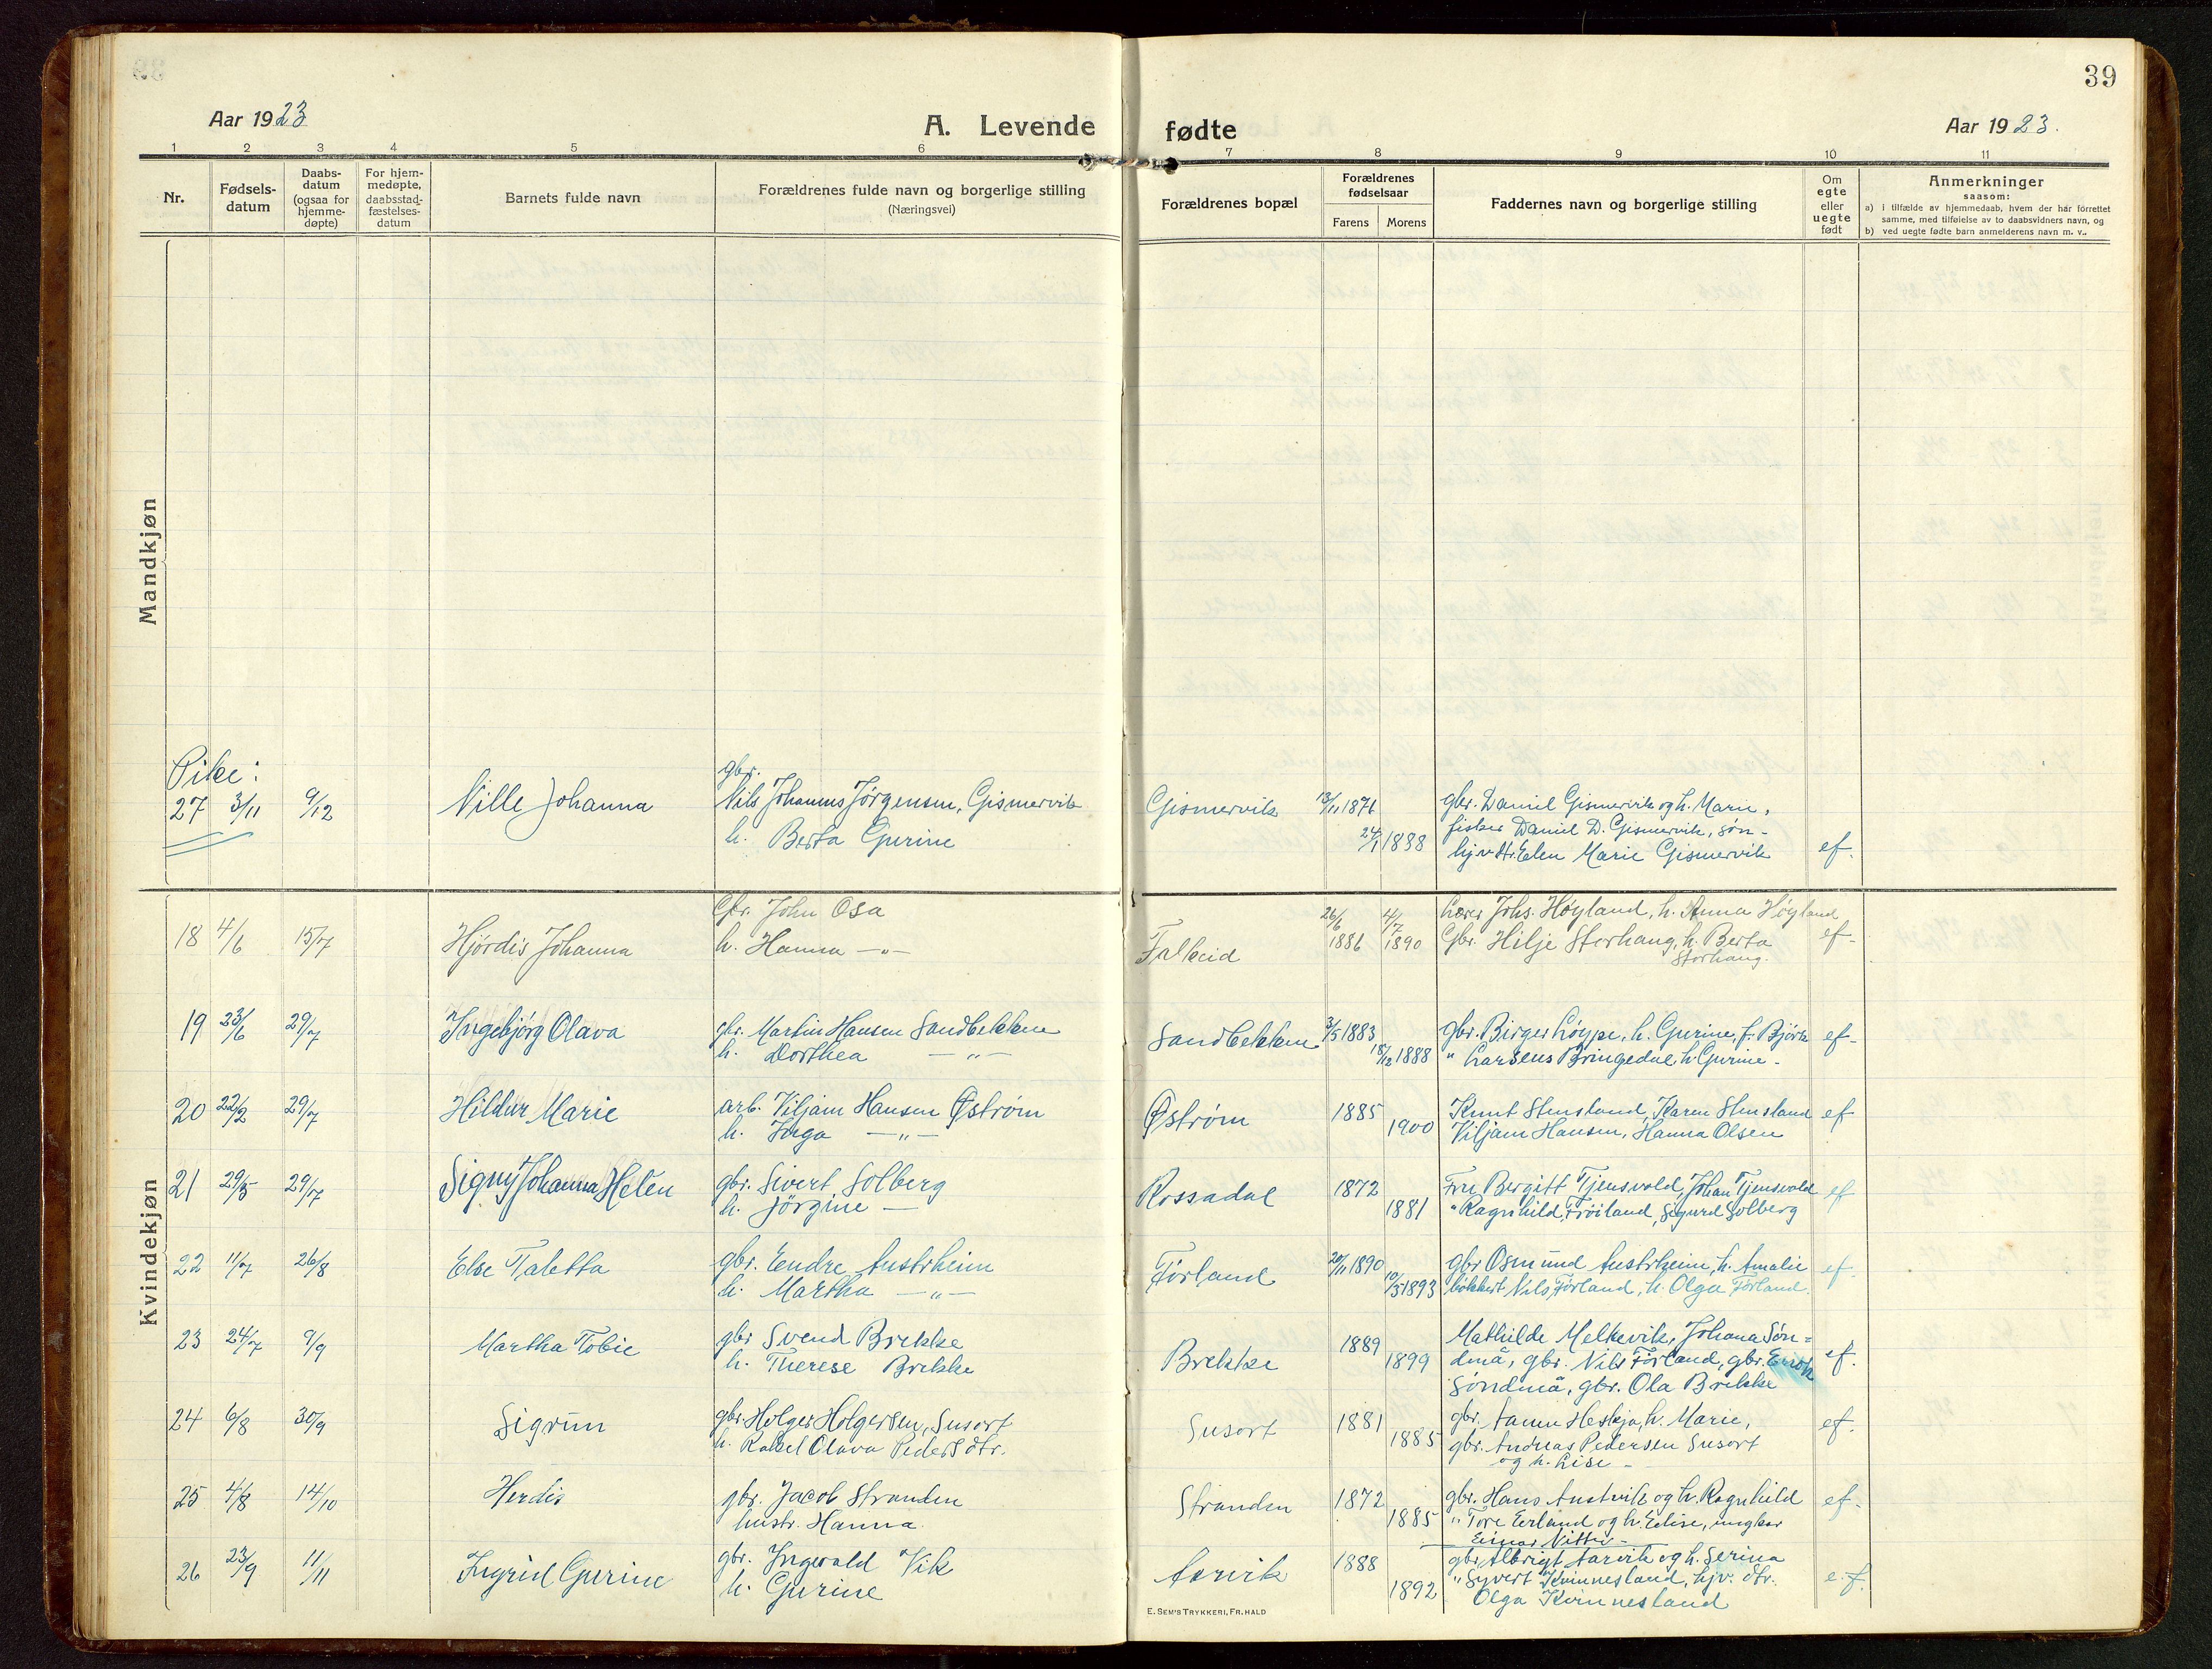 39
Aar 1923
A. Levende fødte
Aar 1923.
1 2 3 4 5 6 7 8 9 10 11
Nr.
Fødsels-
datum
Daabs-
datum
(ogsaa for
hjemme-
døpte)
For hjem-
medøpte,
daabsstad-
fæstelses-
datum
Barnets fulde navn
Forældrenes fulde navn og borgerlige stilling
(Næringsvei)
Forældrenes bopæl
Forældrenes
fødselsaar
Farens Morens
Faddernes navn og borgerlige stilling
Om
egte
eller
uegte
født
Anmerkninger
saasom:
a) i tilfælde av hjemmedaab, hvem der har forrettet
samme, med tilføielse av to daabsvidners navn, og
b) ved uegte fødte barn anmelderens navn m. v..
Mandkjøn
Pike:
27 3/11 9/12 Nille Johanna
gbr.
Nils Johannes Jørgensen, Gismervik
h. Berta Gurine
Gismervik 13/11 1876
24/1 1888
gbr. Daniel Gismervik og h. Marie,
fisker Daniel D. Gismervik, søn-
hjv. dtr. Elen Marie Gismervik ef.
Kvindekjøn
18 4/6 15/7 Hjørdis Johanna
Gbr. John Osa
h. Hanna —"—
Falkeid 26/6 1886 4/7 1890
Lærer Johs. Høyland, h. Anna Høyland
Gbr. Hilje Storhaug, h. Berta ef-
Storhaug.
19 23/6 29/7 Ingebjørg Olava
gbr. Martin Hansen Sandbekken
h. Dorthea —"—
Sandbekken 3/5 1883
18/12 1888
gbr. Birger Løype, h. Gurine, f. Bjørk ef-
" Larsens Bringedal, h. Gurine-
20 22/2 29/7 Hildur Marie
arb. Viljam Hansen Østrøm
h. Inga —"—
Østrøm 1885
1900
Knut Stensland, Karen Stensland ef
Viljam Hansen, Hanna Olsen
21 29/5 29/7 Signy Johanna Helen
gbr. Sivert Solberg
h. Jørgine —
Rossadal 1872
1881
Fru Bergitt Tjensvold, Johan Tjensvold ef
" Ragnhild Frøiland, Sigurd Solberg
22 11/7 26/8 Else Taletta
gbr. Endre Austrheim
h. Martha —"—
Førland 20/11 1890
10/5 1893
gbr Osmund Austrheim, h. Amalie ef.
Nils Førland, h. Olga Førland.
23 24/7 9/9 Martha Tobie
gbr Svend Brekke
h. Therese Brekke
Brekke 1889
1899
Mathilde Melkevik, Johana Søn=
dmå, gbr. Nils Førland, gbr. Enok ef.
Søndmå, gbr. Ola Brekke
24 6/8 30/9 Sigrun
gbr. Holger Holgersen, Susort
h. Rakel Olava Pedersdtr.
Susort 1881
1885
gbr. Aamu Heskja, h. Marie, ef.
gbr. Andreas Pedersen Susort
og h. Lise-
25 4/8 14/10 Herdis
gbr. Jacob Stranden
hustr. Hanna.
Stranden 1872
1885
gbr. Hans Austvik og h. Ragnhild ef-
" Tore Eerland og h. Edise, ungkar
Einar
26 23/9 11/11 Ingrid Gurine
gbr. Ingevald Vik
h. Gurine
Aarvik 1888
1892
gbr Albrigt Aarvik og h. Serina
" Syvert Kvinnesland, hjv. dtr. ef.
Olga Kvinnesland
E. SEM'S TRYKKERI, FR.HALD